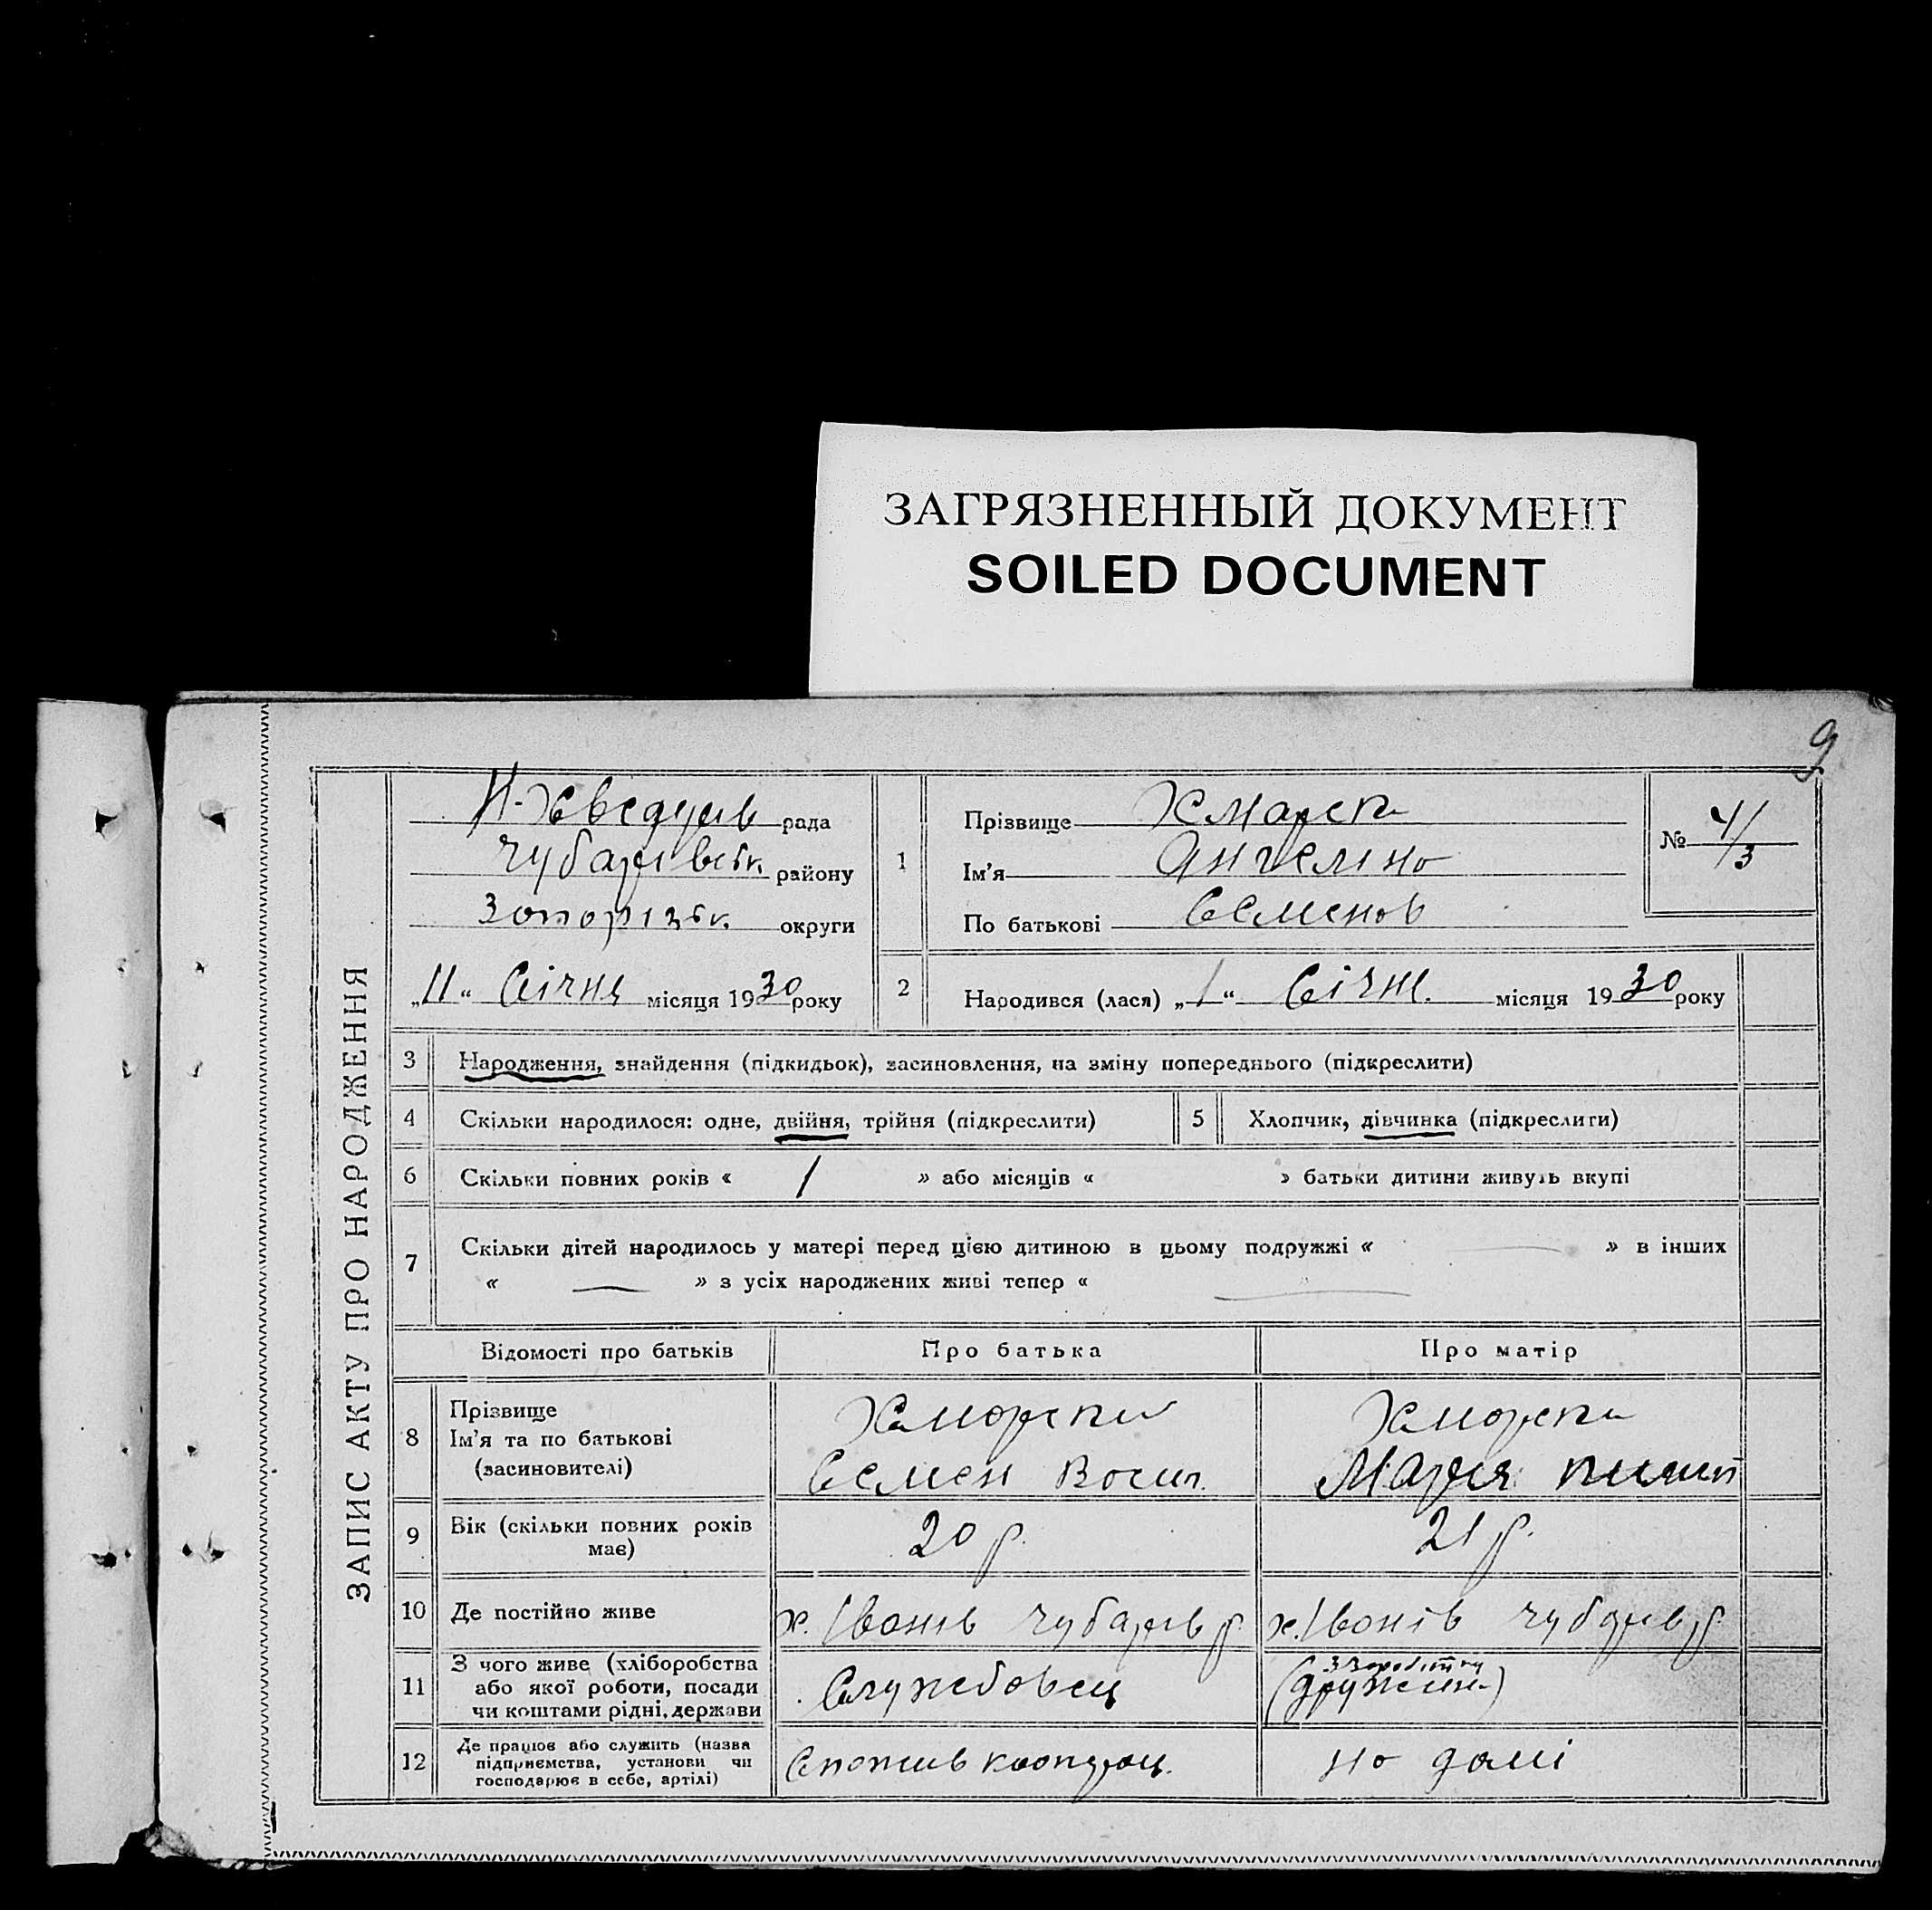 ЗАГРЯЗНЕННЫЙ ДОКУМЕНТ
SOILED DOCUMENT
9
ЗАПИС АКТУ ПРО НАРОДЖЕННЯ
рада
Чубарівськ. району
Запорізьк. округи
„11“ Січня місяця 1930 року
1
Прізвище
Ім'я Ангеліна
По батькові Семенов
№ 4/3
2 Народився (лася) „1“ Січн. місяця 1930 року
3 Народження, знайдення (підкидьок), засиновлення, на зміну попереднього (підкреслити)
4 Скільки народилося: одне, двійня, трійня (підкреслити)
5 Хлопчик, дівчинка (підкреслити)
6 Скільки повних років « 1 » або місяців « » батьки дитини живуть вкупі
7 Скільки дітей народилось у матері перед цією дитиною в цьому подружжі « — » в інших
« — » з усіх народжених живі тепер « — »
Відомості про батьків Про батька Про матір
8 Прізвище
Ім'я та по батькові
(засиновителі)
Семен
Марія
9 Вік (скільки повних років
має)
20 р. 21 р.
10 Де постійно живе х. Іванів Чубарів р. х. Іванів Чубарів р.
11 З чого живе (хліборобства
або якої роботи, посади
чи коштами рідні, держави
Службовец
(дружина)
12 Де працює або служить (назва
підприємства, установи чи
господарює в себе, артілі)
Спожив кооперац. на домі